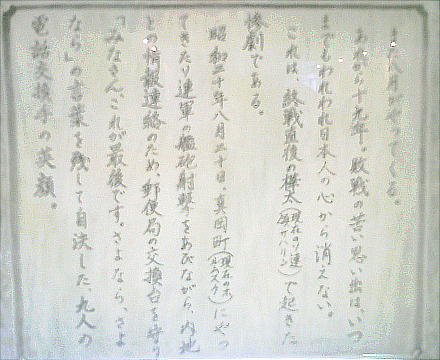 また八月がやってくる。
あれから十九年。敗戦の苦い思い出は、いつ
までもわれわれ日本人の心から消えない。
これは、終戦直後の樺太(現在のソ連南サハリン)で起きた
惨劇である。
昭和二十年八月二十日。真岡町(現在のホルムスク)にやっ
てきたソ連軍の艦砲射撃をあびながら、内地
との情報連絡のため、郵便局の交換台を守り
「みなさん、これが最後です。さよなら、さよ
なら」の言葉を残して自決した、九人の
電話交換手の英顔。